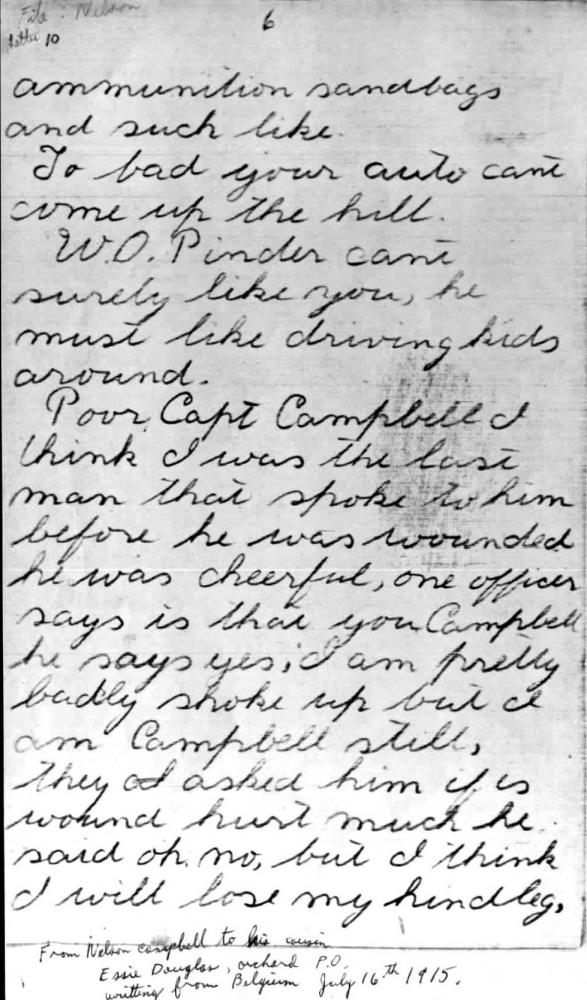 File: Nelson
letter 10
6
ammunition sandbags
and such like.
To bad your auto cant
come up the hill.
W.O. Pinder cant
surely like you, he
must like driving kids
around.
Poor Capt Campbell I
think I was the last
man that spoke to him
before he was wounded
he was cheerful, one officer
says is that you Campbell
he says yes, I am pretty
badly shoke up but I
am Campbell still,
they asked him if is
wound hurt much he
said oh no, but I think
I will lose my hind leg,
From Nelson campbell to his cousin
Essie Douglas, orchard P.O.
writting from Belgium July 16th 1915.